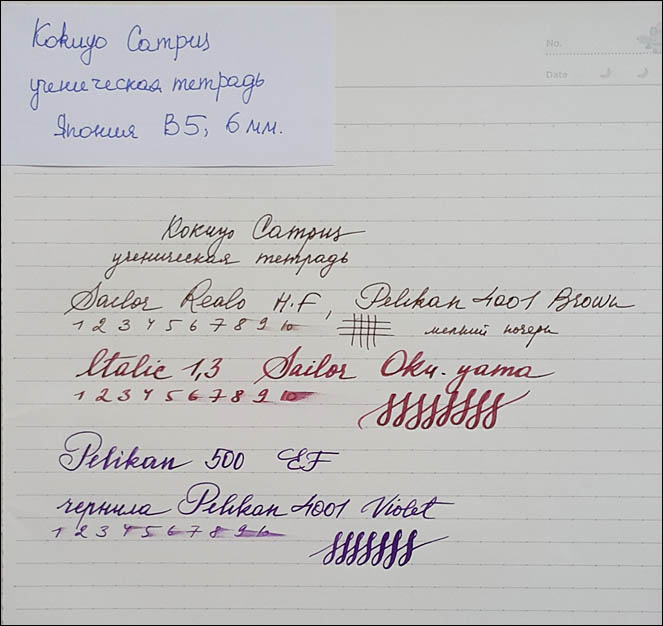 Kokuyo Campus
ученическая тетрадь
Япония B5, 6 мм.
No.
Date
Kokuyo Campus
ученическая тетрадь
Sailor Realo H.F, Pelikan 4001 Brown
1 2 3 4 5 6 7 8 9 10
мелкий почерк
Italic 1,3 Sailor Oku-yama
1 2 3 4 5 6 7 8 9 10
Pelikan 500 EF
чернила Pelikan 4001 Violet
1 2 3 4 5 6 7 8 9 10